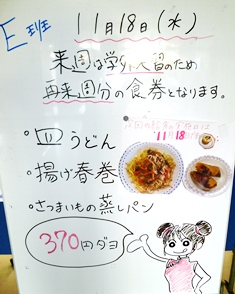 E班
11月18日(水)
来週は学外入留のため
再来週分の食券となります。
11月18日
・皿うどん
・揚げ春巻
・さつまいもの蒸しパン
370円ダヨ